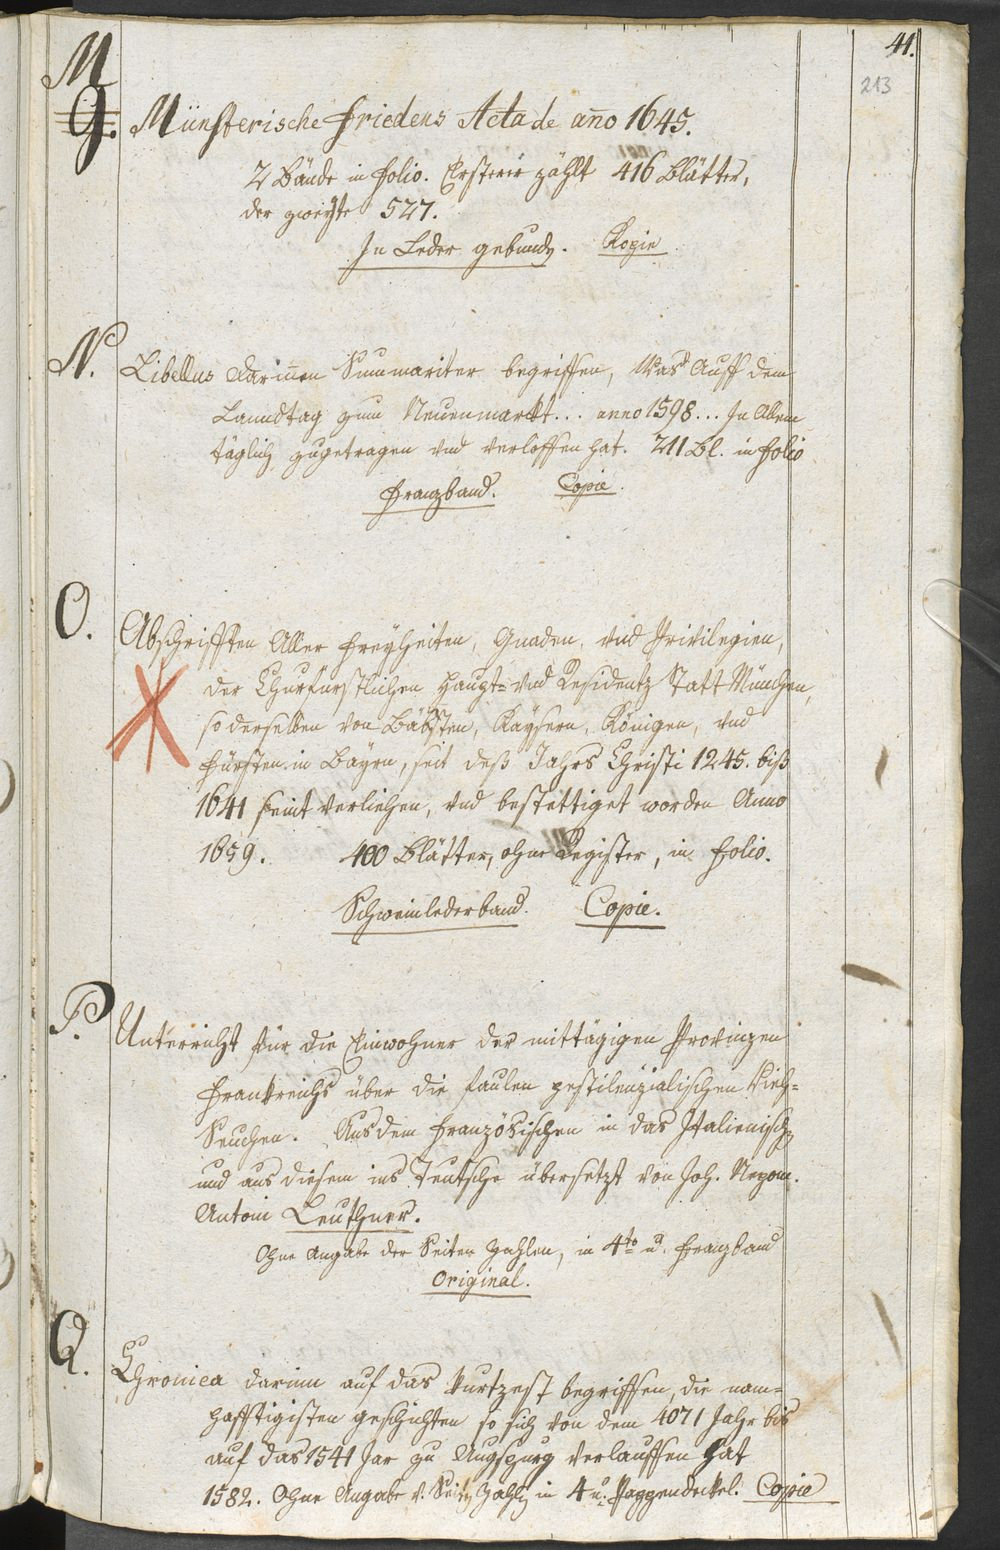 41.
213
M
G. Münsterische Friedens Acta de anno 1645.
2 Bände in Folio. Ersterer zählt 416 Blätter,
der zweyte 527.
In Leder gebunden. Kopie
N. Libellus darinnen Summariter begriffen, Was Auff dem
Lanndtag zum Neuenmarkt... anno 1598... In Allem
täglich zugetragen vnd verloffen hat. 211 Bl. in Folio
Franzband. Copie.
O. Abschrifften Aller Freyheiten, Gnaden, vnd Privilegien,
der Churfürstlichen Haupt= vnd Residentz Statt München,
so derselben von Bäbsten, Kaysern, Königen, vnd
Fürsten in Bayrn, seit deß Jahrs Christi 1245. biß
1641 seint verliehen, vnd bestettiget worden Anno
1659. 400 Blätter, ohne Register, in Folio.
Schweinlederband. Copie.
P. Unterricht für die Einwohner der mittägigen Provinzen
Frankreichs über die faulen pestilenzialischen Vieh=
Seuchen. Aus dem Französischen in das Italienische
und aus diesem ins Teutsche übersetzt von Joh. Nepom.
Antoni Leuthner.
Ohne Angabe der Seiten Zahlen, in 4to u. Franzband
Original.
Q. Chronica darinn auf das kurtzest begriffen, die nam=
hafftigisten geschichten so sich von dem 4071 Jahr bis
auf das 1541 Jar zu Augspurg verlauffen hat
1582. Ohne Angabe d. Seiten Zahlen in 4 u. Pappendeckel. Copie